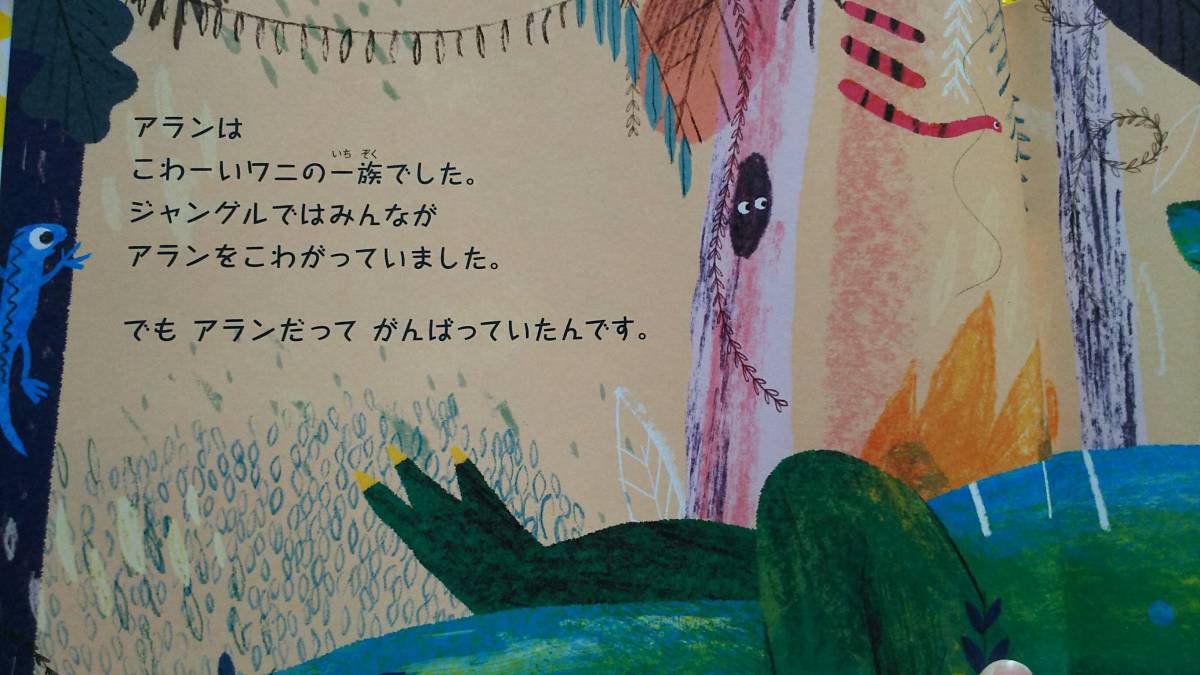 アランは
こわーいワニの一族でした。
いち ぞく
ジャングルではみんなが
アランをこわがっていました。
でも アランだって がんばっていたんです。